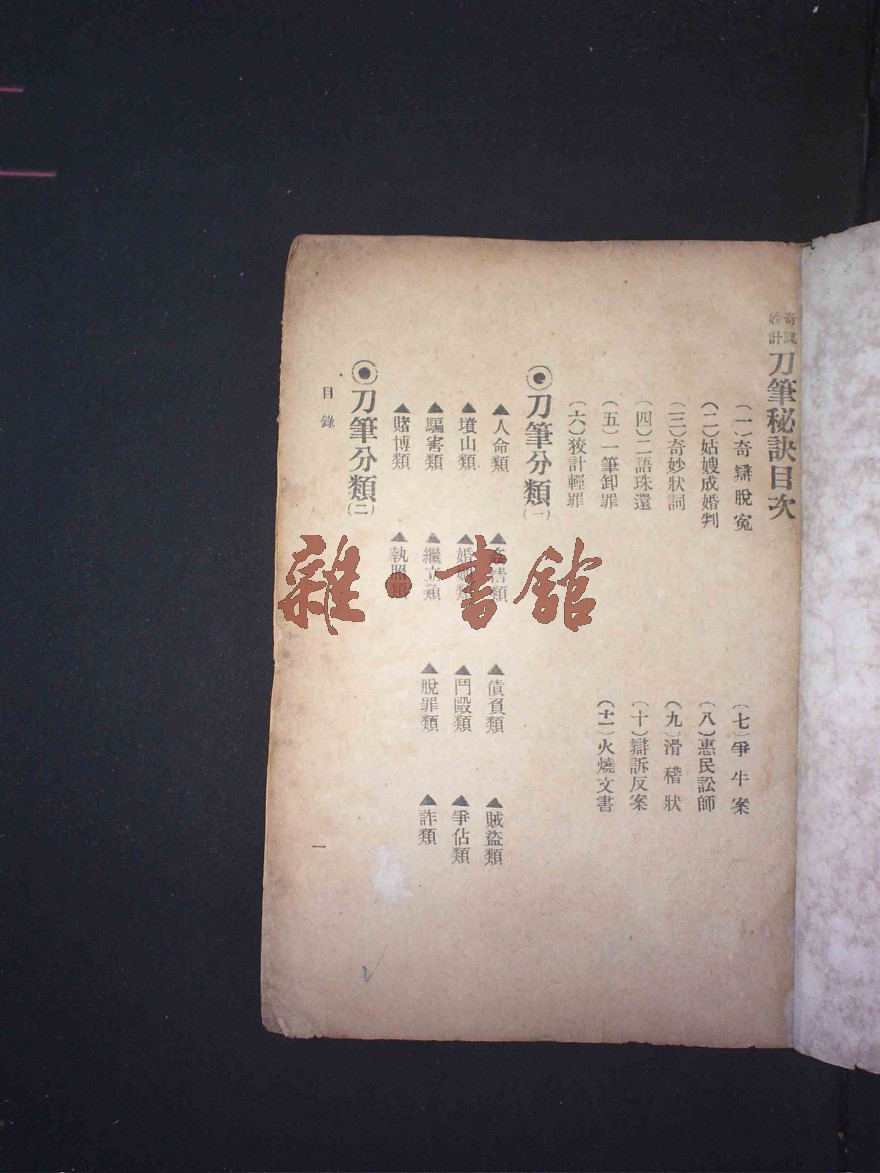 奇謀
妙計
刀筆秘訣目次
(一)奇辯脫寃
(二)姑嫂成婚判
(三)奇妙狀詞
(四)二語珠還
(五)一筆卸罪
(六)狡計輕罪
(七)爭牛案
(八)惠民訟師
(九)滑稽狀
(十)辯訴反案
(十一)火燒文書
⦿刀筆分類(一)
▲人命類
▲姦情類
▲債負類
▲賊盜類
▲墳山類
▲婚姻類
▲鬥毆類
▲爭佔類
▲騙害類
▲繼立類
▲脫罪類
▲詐類
▲賭博類
▲執照類
⦿刀筆分類(二)
目錄
一
雜·書館